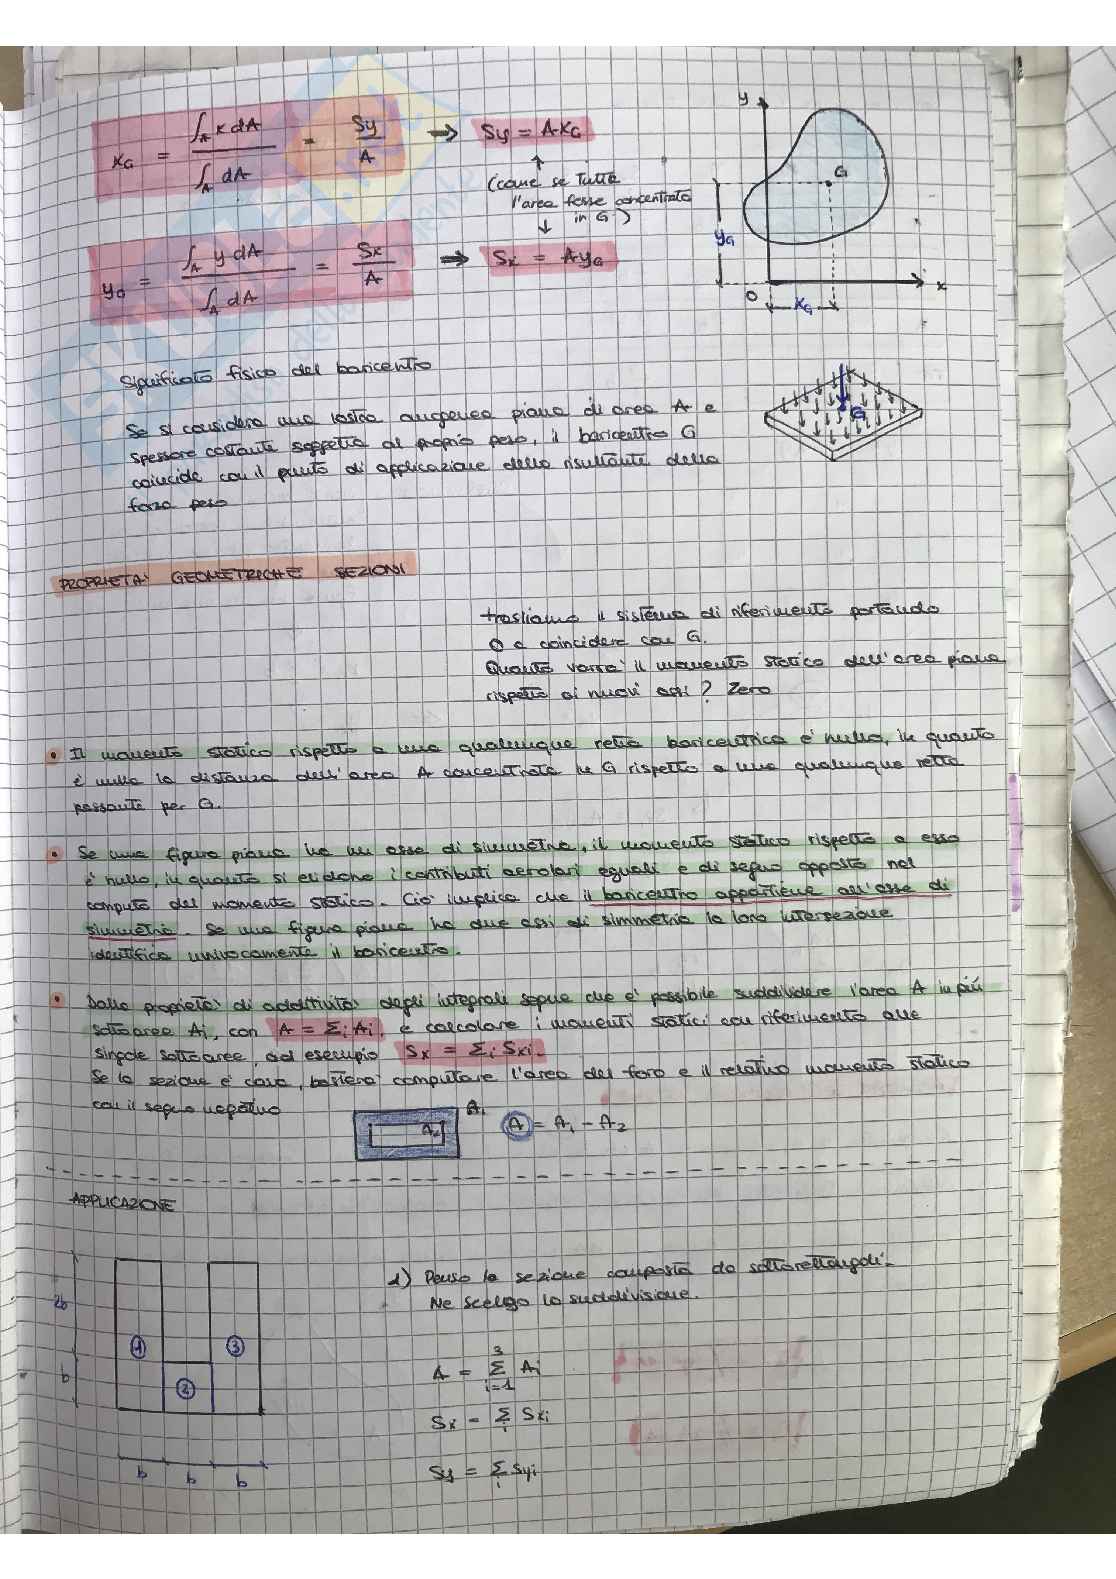 xG = ∫A x dA / ∫A dA = Sy / A → Sy = A xG
(come se tutta
l'area fosse concentrata
in G)
yG = ∫A y dA / ∫A dA = Sx / A → Sx = A yG
y
G
yG
O
xG
x
Significato fisico del baricentro
Se si considera una lastra omogenea piana di area A e
spessore costante soggetta al proprio peso, il baricentro G
coincide con il punto di applicazione della risultante della
forza peso
G
PROPRIETA' GEOMETRICHE SEZIONI
trasliamo il sistema di riferimento portando
O a coincidere con G.
Quanto varra' il momento statico dell'area piana
rispetto ai nuovi assi? Zero
• Il momento statico rispetto a una qualunque retta baricentrica e' nullo, in quanto
e' nulla la distanza dell'area A concentrata in G rispetto a una qualunque retta
passante per G.
• Se una figura piana ha un asse di simmetria, il momento statico rispetto a esso
e' nullo, in quanto si elidono i contributi aerolari eguali e di segno opposto nel
computo del momento statico. Cio' implica che il baricentro appartiene all'asse di
simmetria. Se una figura piana ha due assi di simmetria la loro intersezione
identifica univocamente il baricentro.
• Dalla proprieta' di additivita' degli integrali segue che e' possibile suddividere l'area A in più
sottoaree Ai, con A = Σi Ai, e calcolare i momenti statici con riferimento alle
singole sottoaree, ad esempio Sx = Σi Sxi.
Se la sezione e' cava, bastera' computare l'area del foro e il relativo momento statico
con il segno negativo
A1
A2
A = A1 - A2
APPLICAZIONE
2b
b
1
2
3
b b b
1) Penso la sezione composta da sottorettangoli.
Ne scelgo la suddivisione.
A = Σ(i=1→3) Ai
Sx = Σi Sxi
Sy = Σi Syi